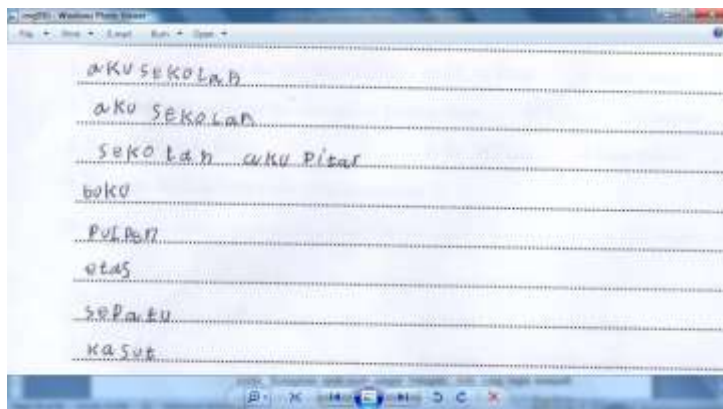 img091 - Windows Photo Viewer
File Print E-mail Burn Open
aKU SEKOLah
aKU SEKOLah
SeKO Lah aKU Pitar
boKU
PULPen
etas
sePatu
Kasut